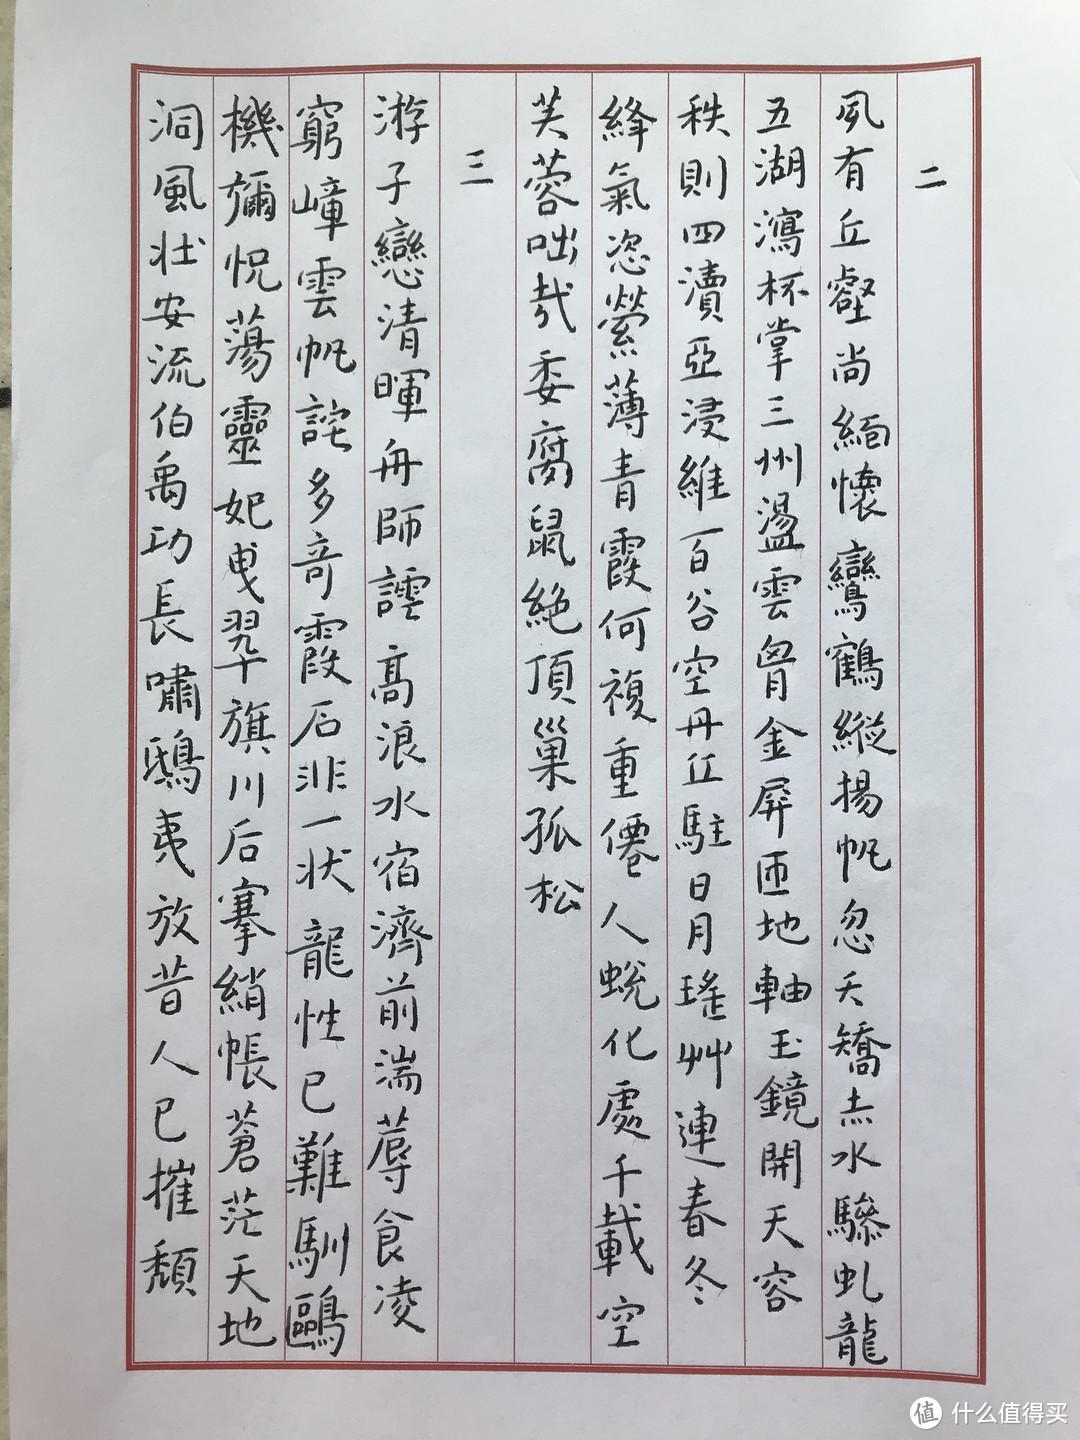 二
夙有丘壑尚緬懷鸞鶴縱揚帆忽夭矯赤水驂虬龍
五湖瀉杯掌三州盪雲胷金屏匝地軸玉鏡開天容
秩則四瀆亞浸維百谷空丹丘駐日月瑤艸連春冬
絳氣恣縈薄青霞何複重僊人蛻化處千載空
芙蓉咄哉委腐鼠絶頂巢孤松
三
游子戀清暉舟師謔高浪水宿濟前湍蓐食凌
窮嶂雲帆詫多奇霞石非一状龍性已難馴鷗
機彌怳蕩靈妃曳翠旗川后搴綃帳蒼茫天地
洞風壯安流伯禹功長嘯鴟夷放昔人已摧頹
值 什么值得买